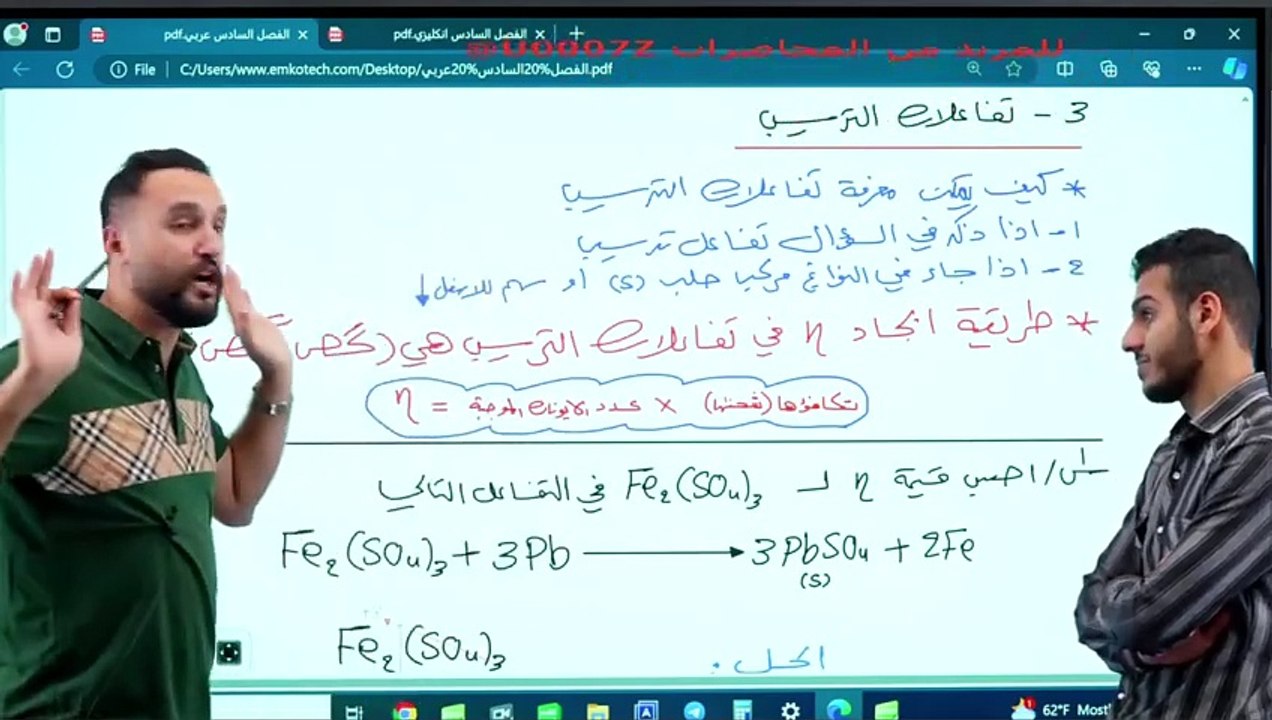 الفصل السادس عربي.pdf
الفصل السادس انكليزي.pdf
للمزيد من المحاضرات @U0007Z
File
C:/Users/www.emkotech.com/Desktop/الفصل%20السادس%20عربي.pdf
3 - تفاعلات الترسيب
* كيف يمكن معرفة تفاعلات الترسيب
1- اذا ذكر في السؤال تفاعل ترسيب
2- اذا جاء في النواتج مركب صلب (s) أو سهم للاسفل ↓
* طريقة ايجاد η في تفاعلات الترسيب هي (
η = عدد الايونات الموجبة × تكافؤها (شحنتها)
س1/ احسب قيمة η لـ Fe₂(SO₄)₃ في التفاعل التالي
Fe₂(SO₄)₃ + 3Pb ⟶ 3PbSO₄ + 2Fe
(s)
الحل .
Fe₂(SO₄)₃
62°F Most